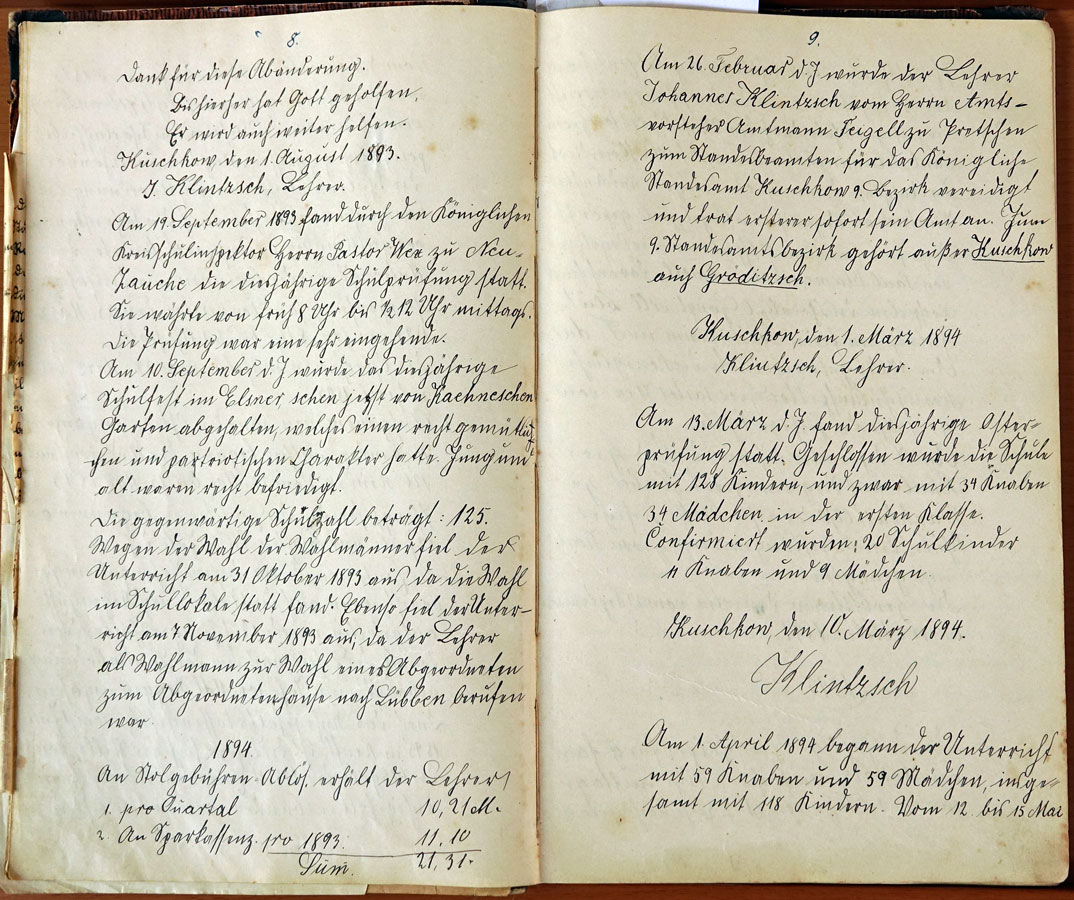 8.
Dank für diese Abänderung.
Bis hierher hat Gott geholfen,
Er wird auch weiter helfen.
Kuschkow den 1. August 1893.
J. Klintzsch, Lehrer.
Am 19. September 1893 fand durch den Königlichen
Kreisschulinspektor Herrn Pastor Wex zu Neu-
Zauche die diesjährige Schulprüfung statt.
Sie währte von früh 8 Uhr bis ½ 12 Uhr mittags.
Die Prüfung war eine sehr eingehende.
Am 10. September d. J wurde das diesjährige
Schulfest im Elsner'schen jetzt von Kaehneschen
Garten abgehalten, welches einen recht gemütli-
chen und partriotischen Charakter hatte. Jung und
alt waren recht befriedigt.
Die gegenwärtige Schulzahl beträgt: 125.
Wegen der Wahl der Wahlmänner fiel der
Unterricht am 31 Oktober 1893 aus, da die Wahl
im Schullokale statt fand. Ebenso fiel der Unter-
richt am 7 November 1893 aus, da der Lehrer
als Wahlmann zur Wahl eines Abgeordneten
zum Abgeordnetenhause nach Lübben berufen
war.
1894.
An Stolgebühren-Ablös. erhält der Lehrer
1. pro Quartal 10,21 M.
2. An Sparkassenz. pro 1893. 11,10
Sum. 21,31.
9.
Am 26. Februar d. J wurde der Lehrer
Johannes Klintzsch vom Herrn Amts-
vorsteher Amtmann Feigell zu Pretschen
zum Standesbeamten für das Königliche
Standesamt Kuschkow 9. Bezirk vereidigt
und trat ersterer sofort sein Amt an. Zum
9. Standesamtsbezirk gehört außer Kuschkow
auch Gröditzsch.
Kuschkow, den 1. März 1894
Klintzsch, Lehrer.
Am 13. März d. J. fand diesjährige Oster-
prüfung statt. Geschlossen wurde die Schule
mit 128 Kindern, und zwar mit 34 Knaben
34 Mädchen in der ersten Klasse.
Confirmiert wurden: 20 Schulkinder
11 Knaben und 9 Mädchen.
Kuschkow, den 10. März 1894.
Klintzsch
Am 1. April 1894 begann der Unterricht
mit 59 Knaben und 59 Mädchen, insge-
samt mit 118 Kindern. Vom 12. bis 15 Mai